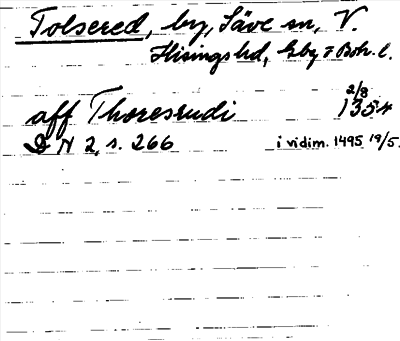 Tolsered, by, Säve sn, V.
Hisings hd, Gbg o Boh. l.
2/8
aff Thoresrudi 1354
DN 2, s. 266 i vidim. 1495 19/5.